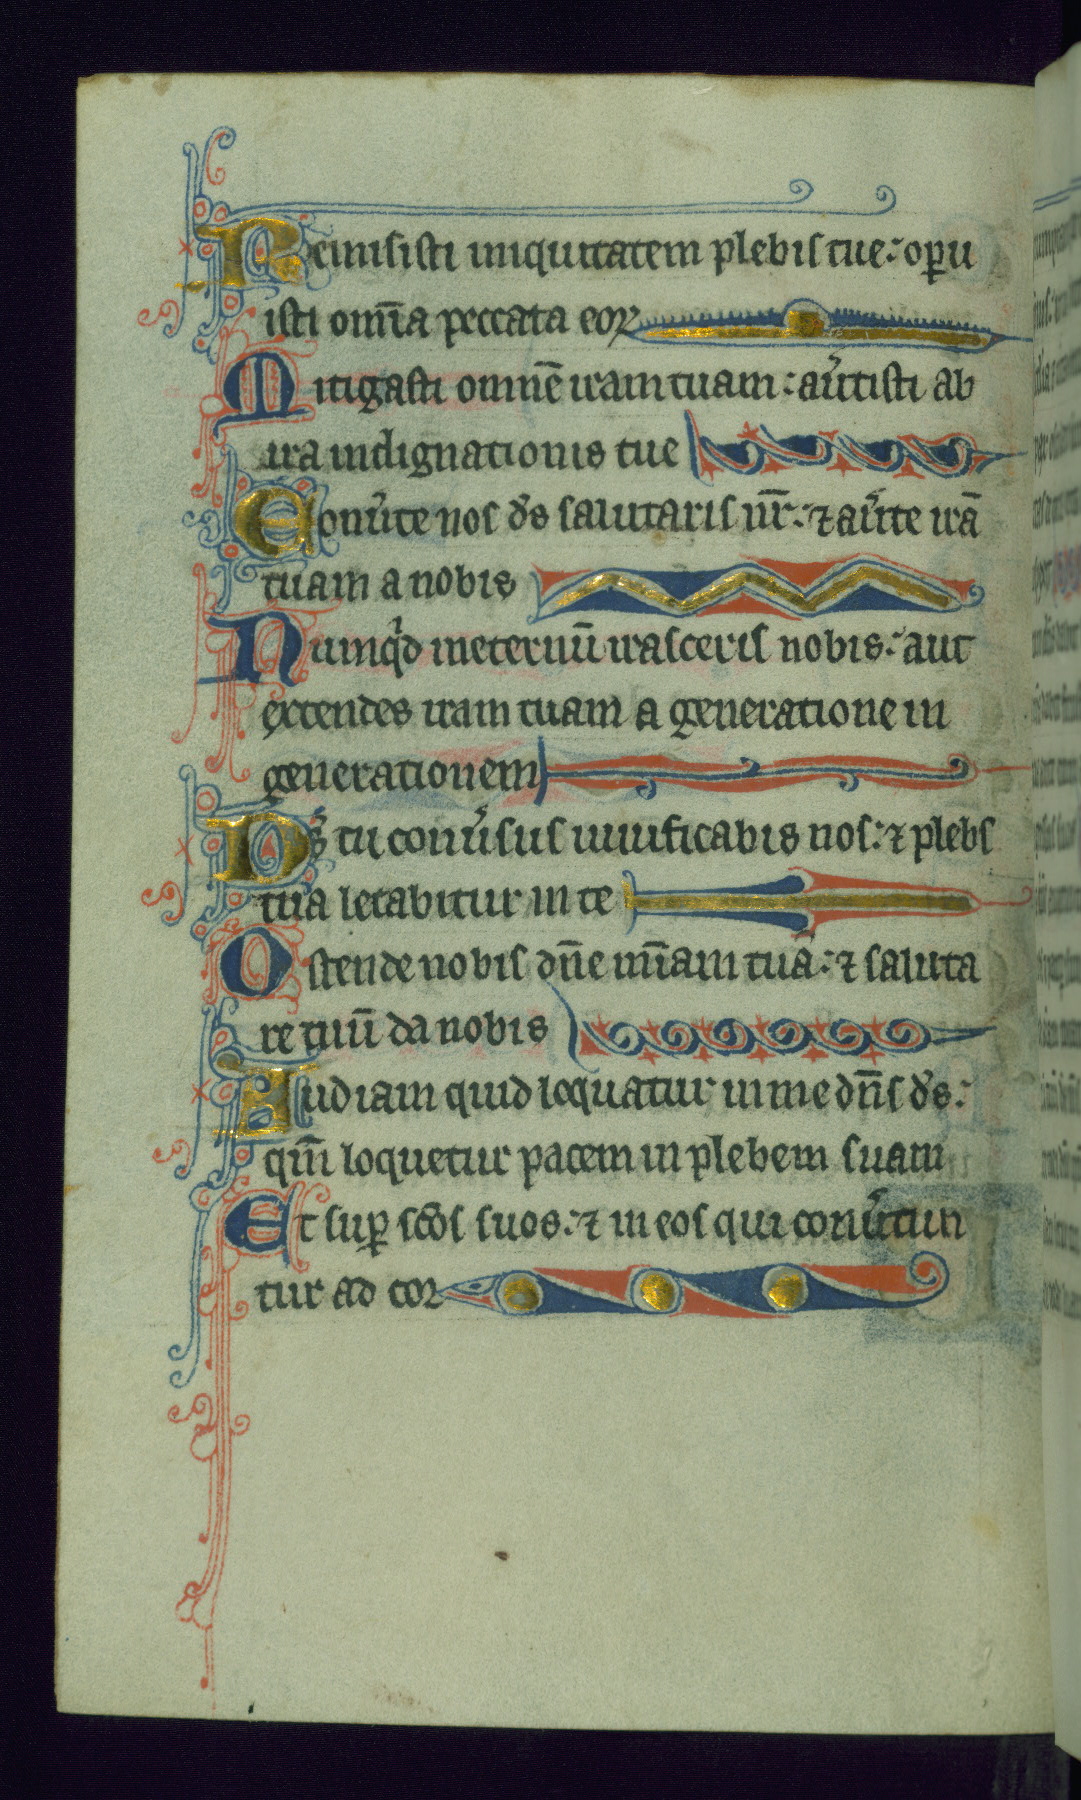 Remisisti iniquitatem plebis tue: op̱u
isti om̄ia peccata eoꝝ
Mitigasti omnē iram tuam: au̓tisti ab
ira indignationis tue
Conu̓te nos d̓s salutaris nr̄: ⁊ au̓te irā
tuam a nobis
Numqͥd ineternū irasceris nobis: aut
extendes iram tuam a generatione in
generationem
Ds̓ tu conu̓sus uiuificabis nos: ⁊ plebs
tua letabitur in te
Ostende nobis dn̄e mīam tuā: ⁊ saluta
re tuū da nobis
Audiam quid loquatur in me dn̄s d̓s:
qm̄ loquetur pacem in plebem suam
Et suꝑ scōs suos: ⁊ in eos qui conu̓tun
tur ad cor